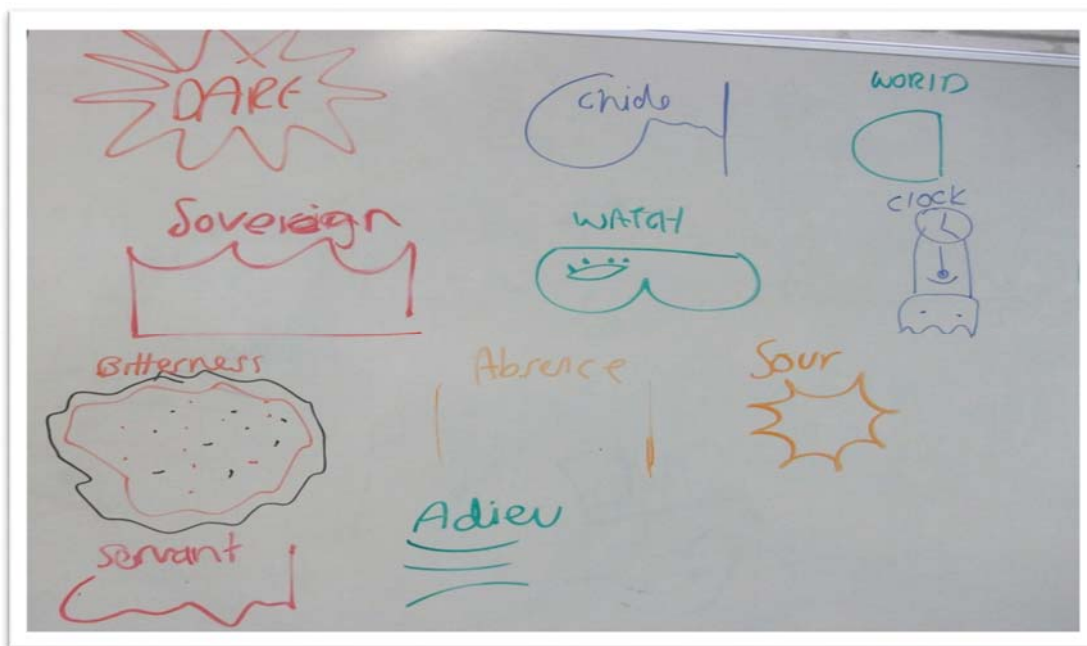 DARE
chide
WORLD
Sovereign
WATCH
clock
Bitterness
Absence
Sour
Adieu
servant